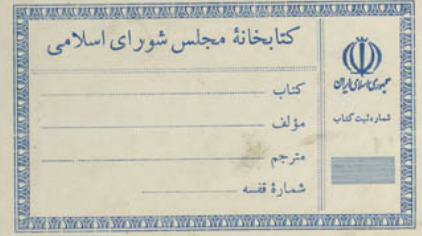 کتابخانهٔ مجلس شورای اسلامی
جمهوری اسلامی ایران
کتاب
شماره ثبت کتاب
مؤلف
مترجم
شمارهٔ قفسه